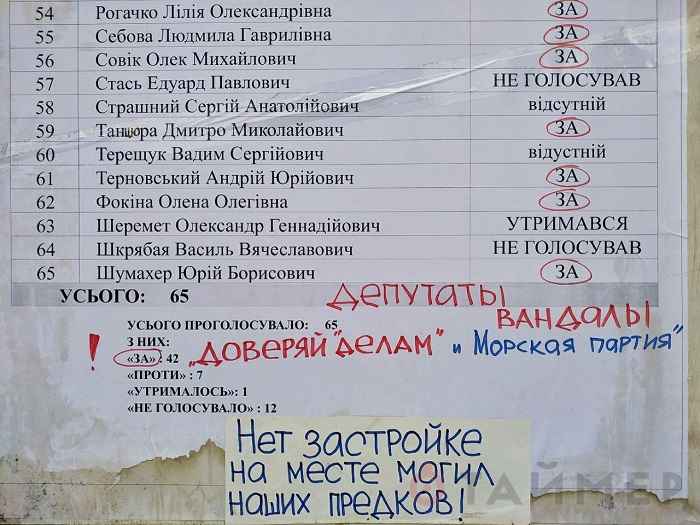 54 Рогачко Лілія Олександрівна ЗА
55 Себова Людмила Гаврилівна ЗА
56 Совік Олек Михайлович ЗА
57 Стась Едуард Павлович НЕ ГОЛОСУВАВ
58 Страшний Сергій Анатолійович відсутній
59 Танцюра Дмитро Миколайович ЗА
60 Терещук Вадим Сергійович відустній
61 Терновський Андрій Юрійович ЗА
62 Фокіна Олена Олегівна ЗА
63 Шеремет Олександр Геннадійович УТРИМАВСЯ
64 Шкрябая Василь Вячеславович НЕ ГОЛОСУВАВ
65 Шумахер Юрій Борисович ЗА
УСЬОГО: 65
ДЕПУТАТЫ
ВАНДАЛЫ
УСЬОГО ПРОГОЛОСУВАЛО: 65
З НИХ:
«ЗА» : 42
! „ДОВЕРЯЙ "ДЕЛАМ" и Морская партия"
«ПРОТИ» : 7
«УТРИМАЛОСЬ»: 1
«НЕ ГОЛОСУВАЛО» : 12
Нет застройке
на месте могил
наших предков!
ТАЙМЕР